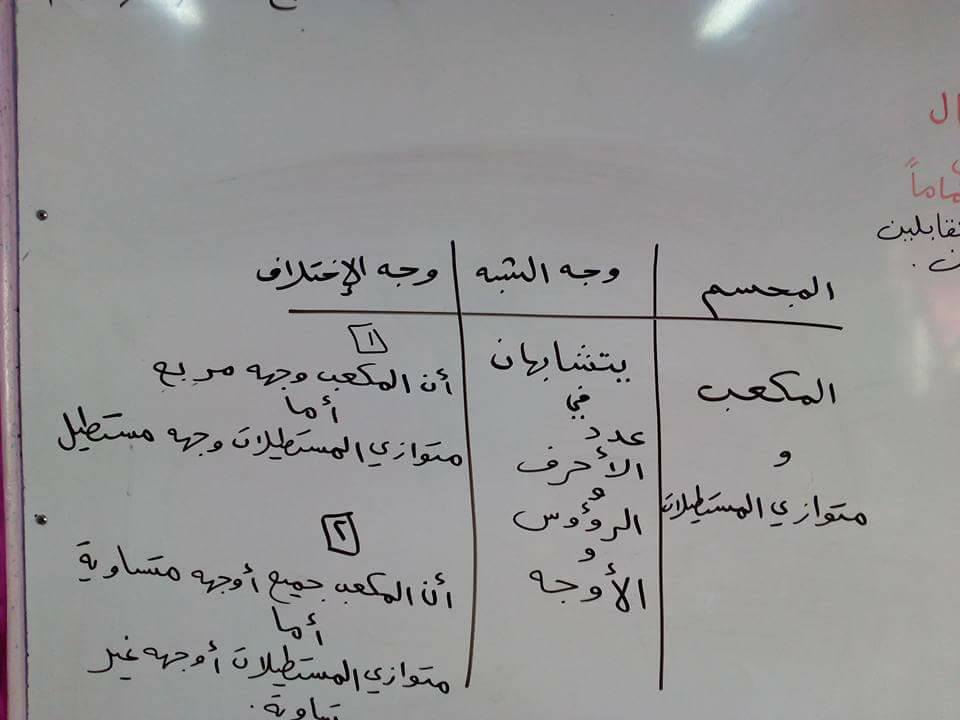 ال
ماماً
تقابلين
ن .
المجسم
وجه الشبه
وجه الإختلاف
المكعب
و
متوازي المستطيلات
يتشابهان
في
عدد
الأحرف
و
الرؤوس
و
الأوجه
١
أن المكعب وجهه مربع
أما
متوازي المستطيلات وجهه مستطيل
٢
أن المكعب جميع أوجهه متساوية
أما
متوازي المستطيلات أوجهه غير
تساوية .